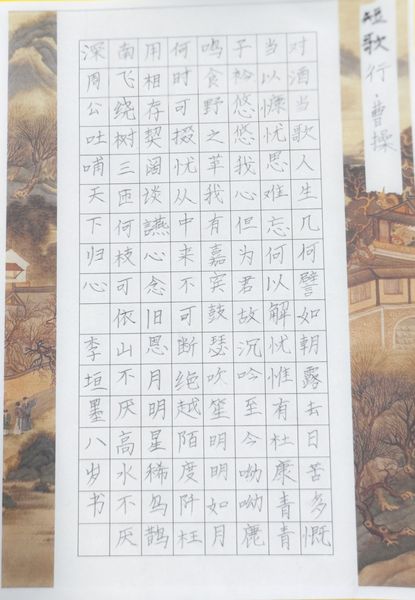 短歌行·曹操
对酒当歌人生几何譬如朝露去日苦多慨
当以慷忧思难忘何以解忧惟有杜康青青
子衿悠悠我心但为君故沉吟至今呦呦鹿
鸣食野之苹我有嘉宾鼓瑟吹笙明明如月
何时可掇忧从中来不可断绝越陌度阡枉
用相存契阔谈讌心念旧恩月明星稀乌鹊
南飞绕树三匝何枝可依山不厌高水不厌
深周公吐哺天下归心 李垣墨八岁书